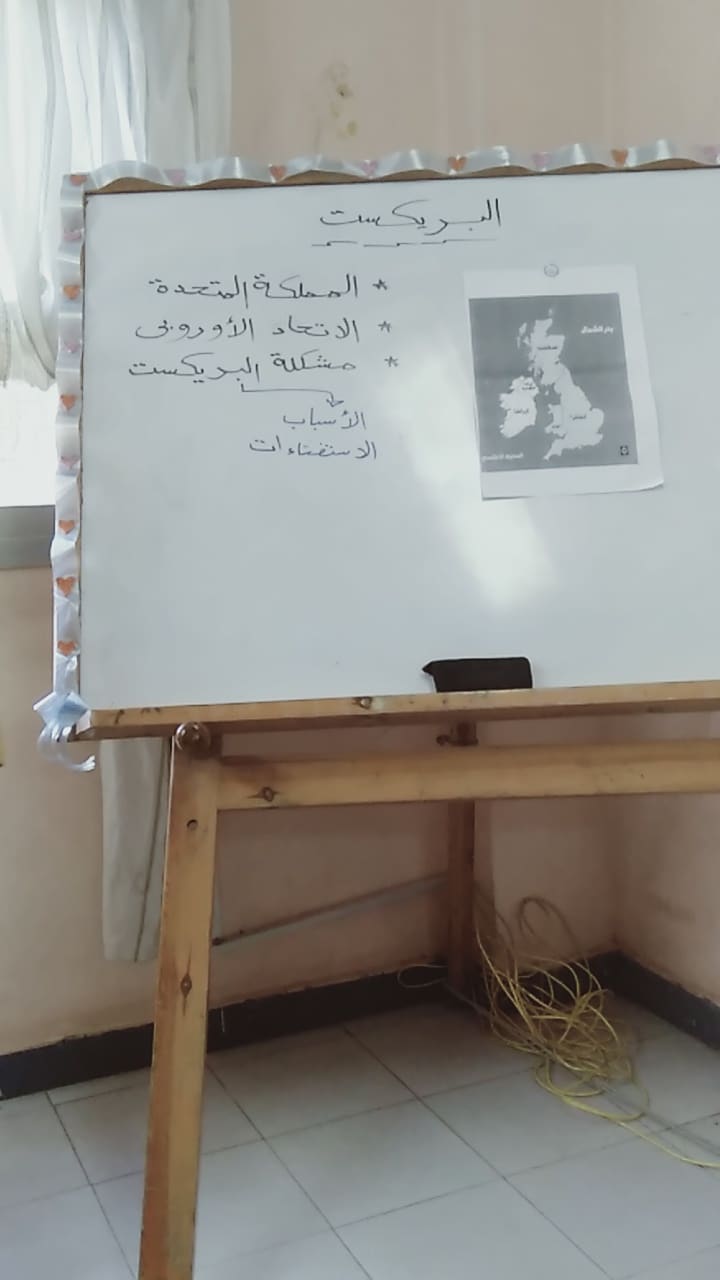 البريكست
* المملكة المتحدة
* الاتحاد الأوروبى
* مشكلة البريكست
الأسباب
الاستفتاءات
بحر الشمال